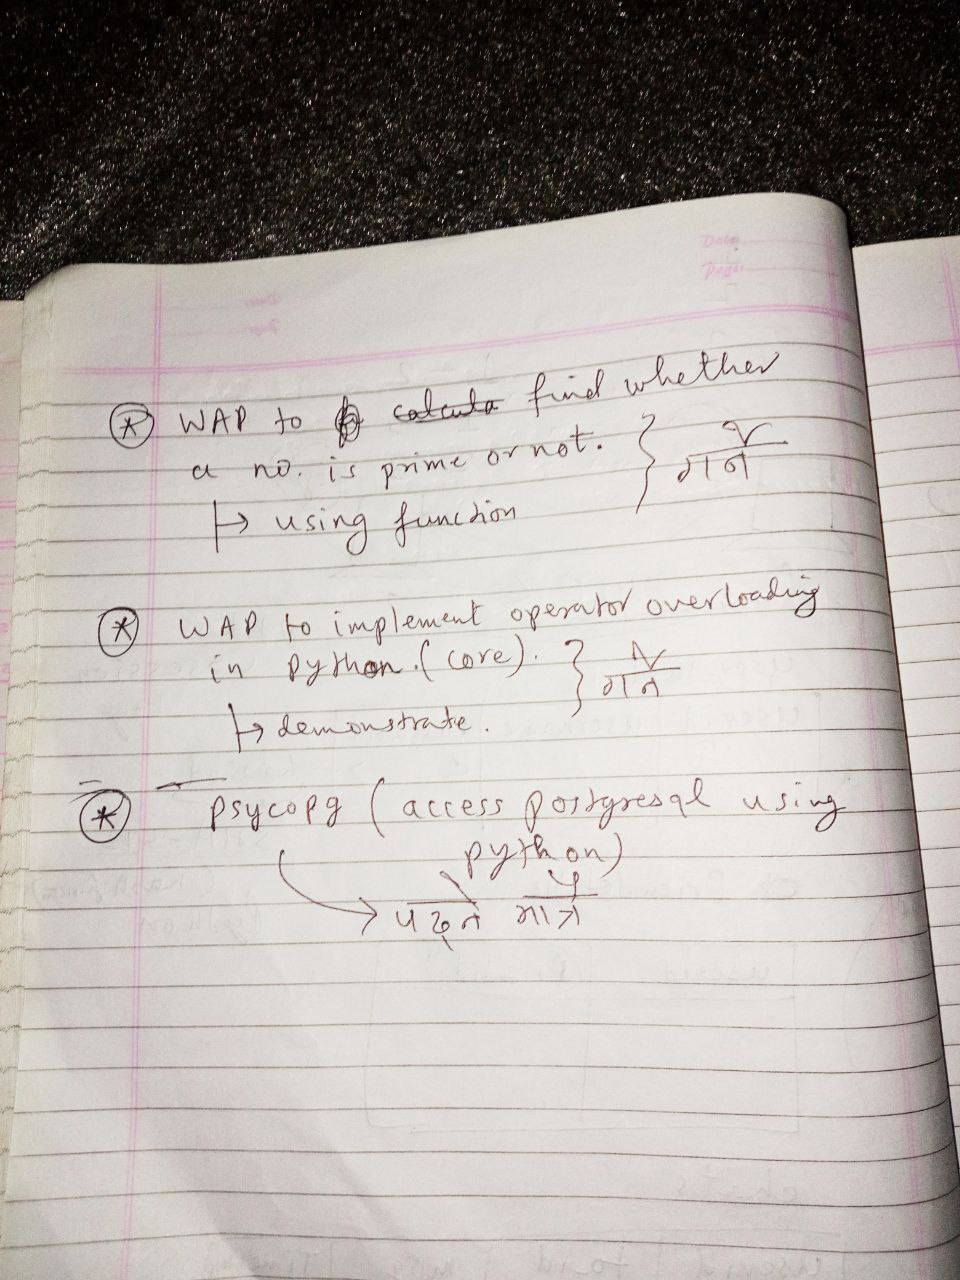 Date
Page
* WAP to find whether
a no. is prime or not.
↳ using function
* WAP to implement operator overloading
in python. (core).
↳ demonstrate.
* psycopg (access postgresql using
python)